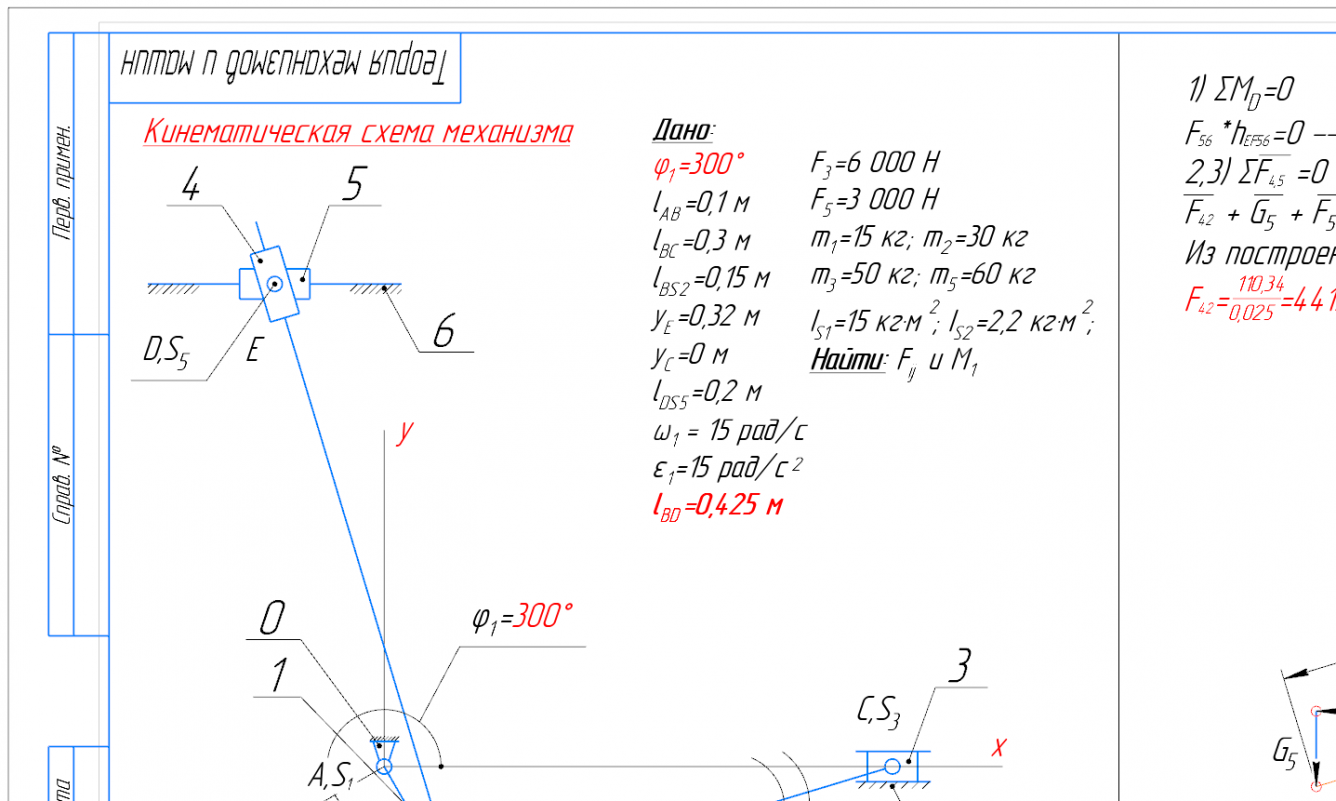 Теория механизмов и машин
Перв. примен.
Справ. №
Кинематическая схема механизма
4
5
6
D,S₅
E
y
0
1
φ₁=300°
A,S₁
C,S₃
3
x
Дано:
φ₁=300°
l_AB=0,1 м
l_BC=0,3 м
l_BS2=0,15 м
y_E=0,32 м
y_C=0 м
l_DS5=0,2 м
ω₁ = 15 рад/с
ε₁=15 рад/с²
l_BD=0,425 м
F₃=6 000 Н
F₅=3 000 Н
m₁=15 кг; m₂=30 кг
m₃=50 кг; m₅=60 кг
I_S1=15 кг·м²; I_S2=2,2 кг·м²;
Найти: F_ij и M₁
1) ΣM_D=0
F₅₆ *h_EF56=0 --
2,3) ΣF₄,₅ =0
F₄₂ + G₅ + F₅
Из построен
F₄₂=110,34/0,025=441
G₅